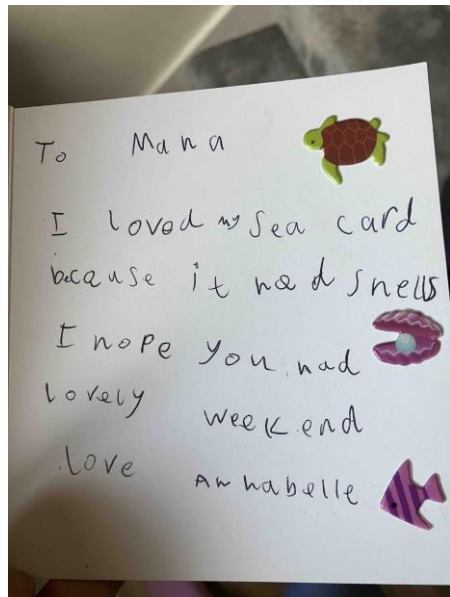 To Mana
I loved my sea card
because it had shells
I hope you had
lovely weekend
love Annabelle